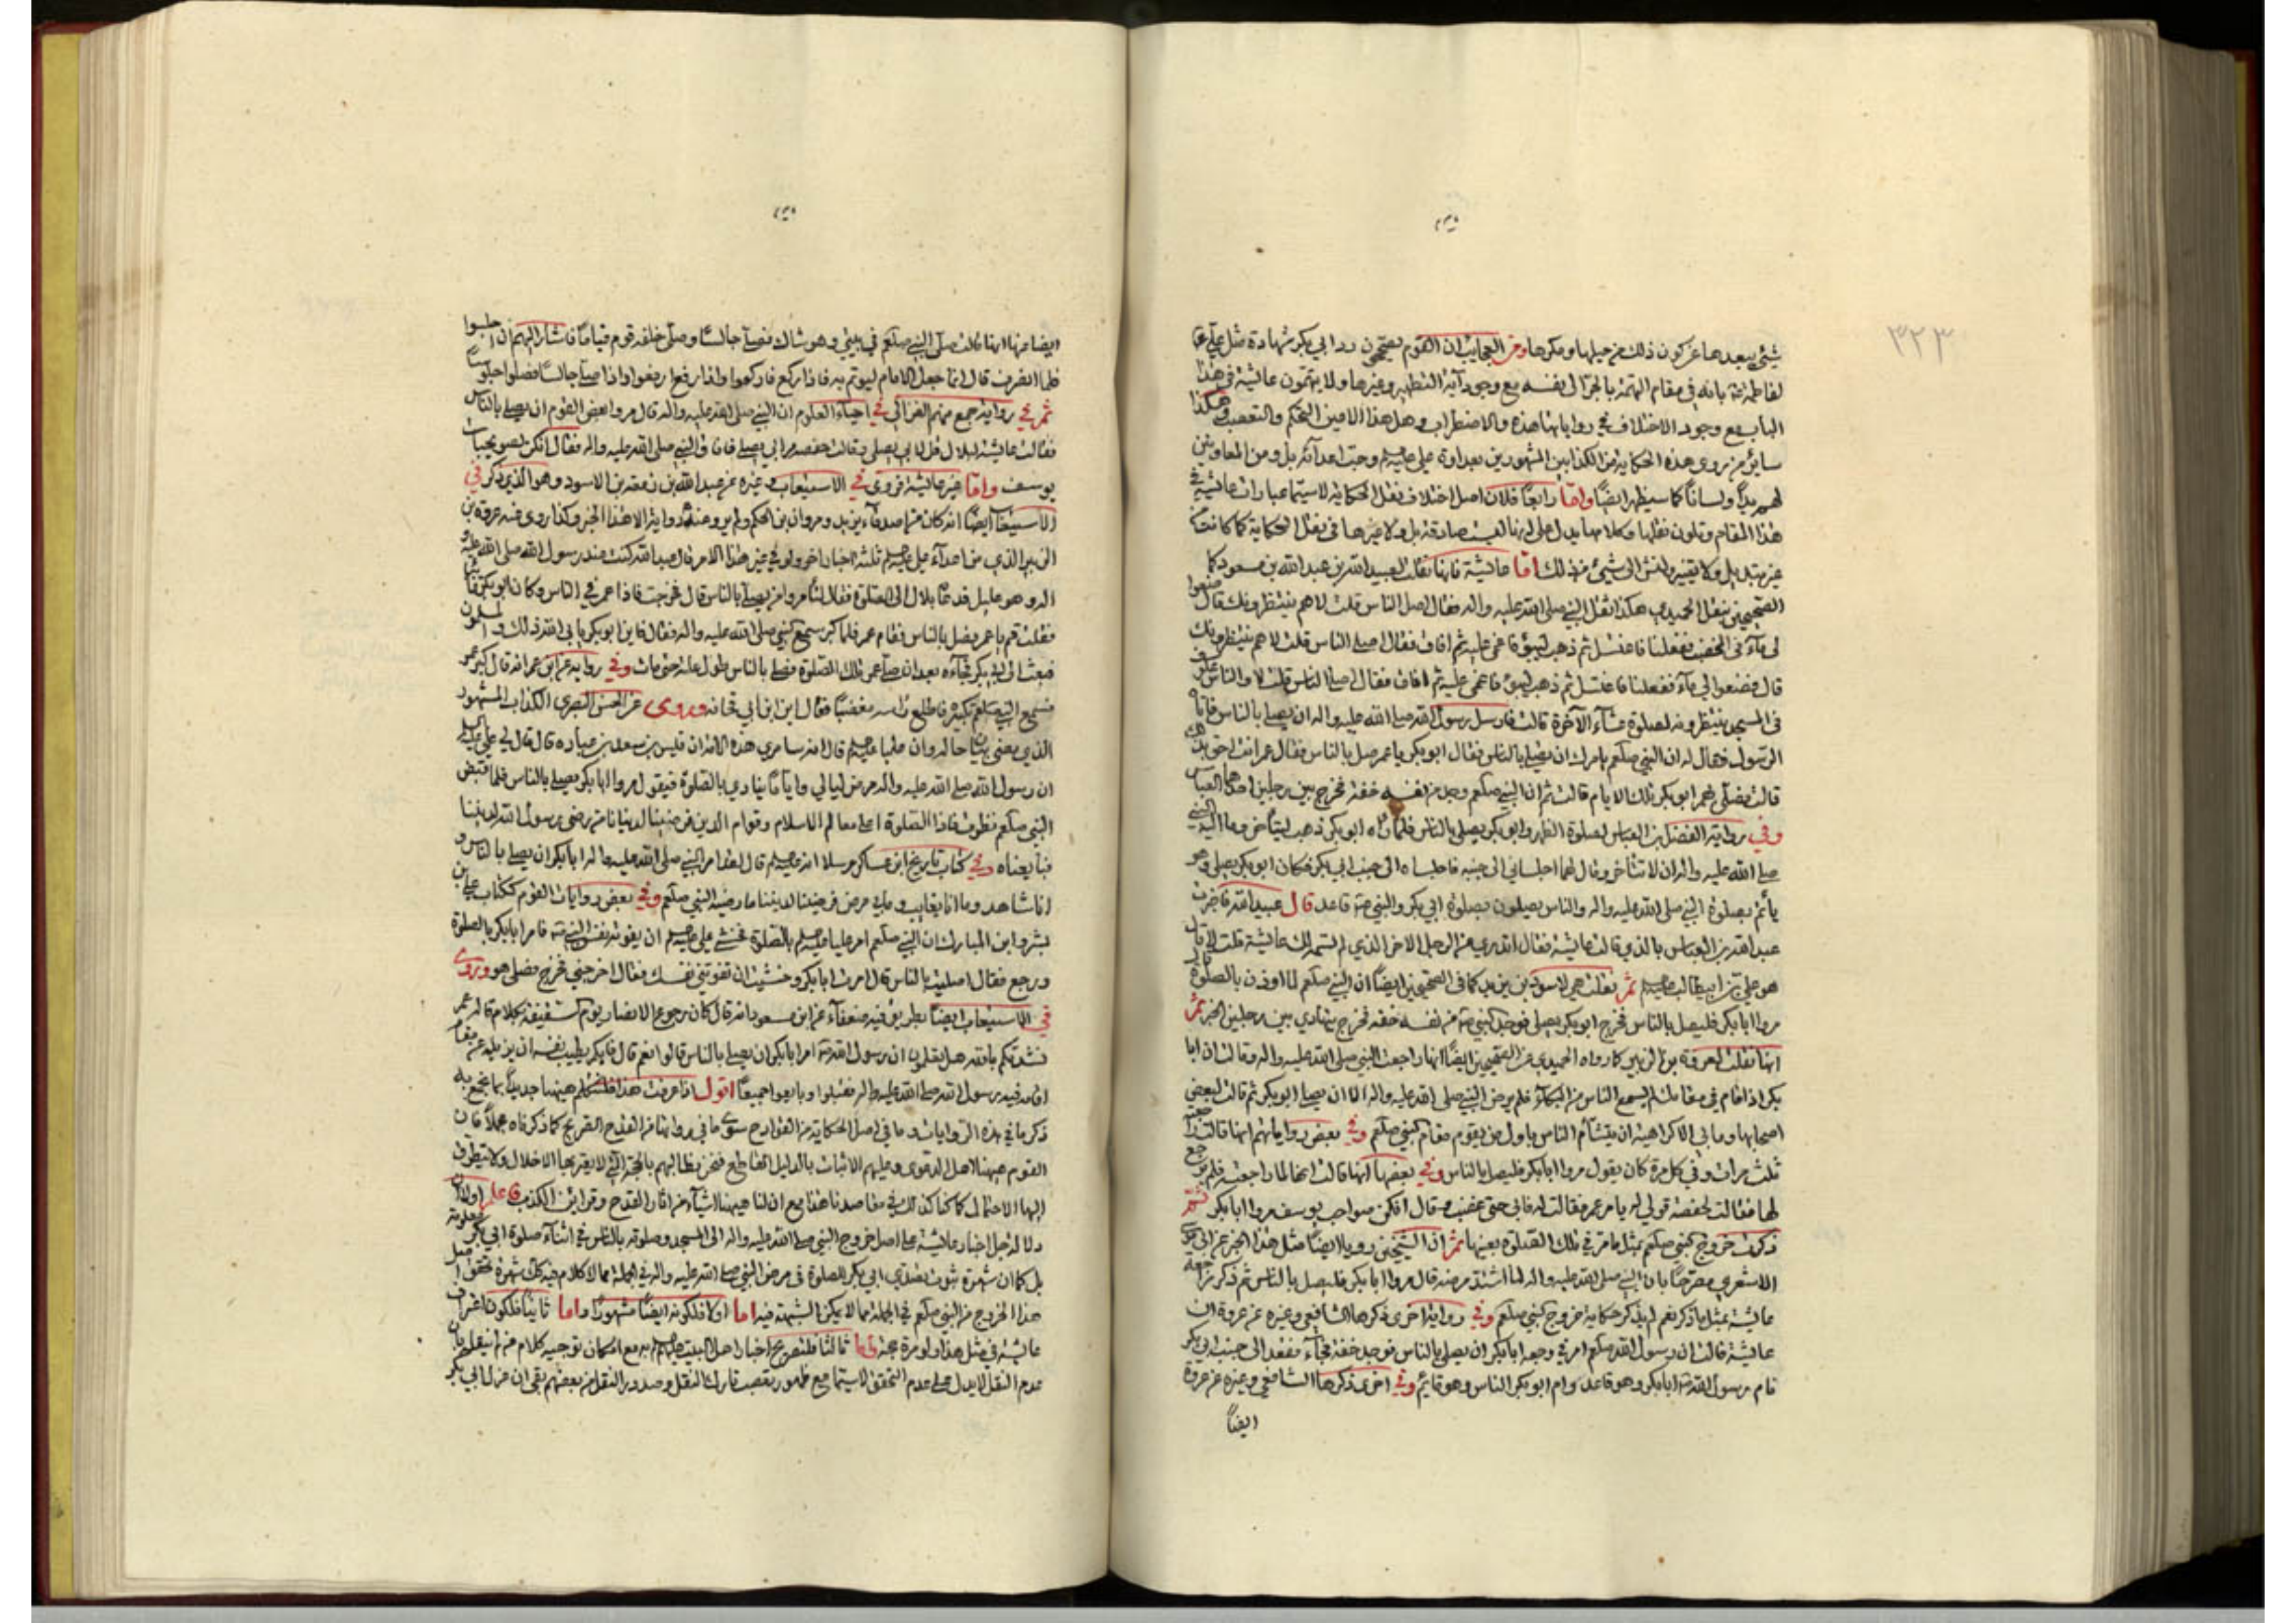 ٣٢٣
شيئ يبعدها عن كون ذلك من حيلها ومكرها ومن العجايب ان القوم يصححون رد ابي بكر شهادة مثل علي
لفاطمة بانه في مقام التهمة بالجر الى نفسه مع وجود آية التطهير وغيرها ولا يتهمون عائشة في هذا
الباب مع وجود الاختلاف في رواياتها هذه والاضطراب وهل هذا الا من التحكم والتعصب وهكذا
ساير من روى هذه الحكاية من الكذابين المشهورين بعداوة علي وحب اعدآئه بل ومن المعاونين
لهم يداً ولساناً كما سيظهر ايضاً واما رابعاً فلان اصل اختلاف نقل الحكاية لاسيما عبارات عائشة في
هذا المقام وتلون نقلها وكلامها يدل على انها ليست صادقة بل ولا غيرها في نقل الحكاية كما كانت
من غير تبديل ولا تغيير شيئ من ذلك اما عائشة فانها نقلت لعبيد الله بن عبد الله بن مسعود كما
الصحيحين بنقل الحميدي هكذا ثقل النبي صلى الله عليه واله فقال اصلى الناس قلت لا هم ينتظرونك فقال ضعوا
لي مآء في المخضب ففعلنا فاغتسل ثم ذهب لينوء فاغمي عليه ثم افاق فقال اصلى الناس قلت لا هم ينتظرونك
قال فضعوا لي مآء ففعلنا فاغتسل ثم ذهب لينوء فاغمي عليه ثم افاق فقال اصلى الناس قلت لا والناس عكوف
في المسجد ينتظرونه لصلوة عشآء الآخرة قالت فارسل رسول الله صلى الله عليه واله ان يصلي بالناس فاتاه
الرسول فقال له ان النبي صلعم يامرك ان يصلي بالناس فقال ابو بكر يا عمر صل بالناس فقال عمر انت احق بذلك
قالت فصلى بهم ابو بكر تلك الايام قالت ثم ان النبي صلعم وجد من نفسه خفة فخرج بين رجلين احدهما العباس
وفي رواية الفضل بن العباس لصلوة الظهر وابو بكر يصلي بالناس فلما رآه ابو بكر ذهب ليتأخر فاومأ اليه النبي
صلى الله عليه واله ان لا تتأخر وقال لهما اجلساني الى جنبه فاجلساه الى جنب ابي بكر فكان ابو بكر يصلي وهو
يأتم بصلوة النبي صلى الله عليه واله والناس يصلون بصلوة ابي بكر والنبي قاعد قال عبيد الله فاخبرت
عبد الله بن العباس بالذي قالت عائشة فقال اتدري من الرجل الاخر الذي لم تسمه لك عائشة قلت لا قال
هو علي بن ابيطالب ثم نقلت هي لاسود بن يزيد كما في الصحيحين ايضاً ان النبي صلعم لما اوذن بالصلوة قال
مروا ابا بكر فليصل بالناس فخرج ابو بكر يصلي فوجد النبي من نفسه خفة فخرج يتهادي بين رجلين الخبر ثم
انها نقلت لعروة بن الزبير كما رواه الحميدي عن الصحيحين ايضاً انها راجعت النبي صلى الله عليه واله وقالت ان ابا
بكر اذا قام في مقامك لم يسمع الناس من البكاء فلم يرض النبي صلى الله عليه واله الا ان يصلي ابو بكر ثم قالت لبعض
اصحابها وما بي الا كراهية ان يتشأم الناس باول من يقوم مقام النبي صلعم وفي بعض رواياتهم انها قالت راجعته
ثلث مرات وفي كل مرة كان يقول مروا ابا بكر فليصل بالناس وفي بعضها انها قالت انها لما راجعته فلم يرجع
لها فقالت لحفصة قولي له يامر عمر فقالت له فابى حتى غضب وقال انكن صواحب يوسف مروا ابا بكر ثم
ذكرت خروج النبي صلعم بمثل ما مر في تلك الصلوة بعينها ثم ان الشيخين رويا ايضاً مثل هذا الخبر عن ابي موسى
الاشعري مصرحاً بان النبي صلى الله عليه واله لما اشتد مرضه قال مروا ابا بكر فليصل بالناس ثم ذكر مراجعة
عائشة بمثل ما ذكر نعم لم يذكر حكاية خروج النبي صلعم وفي رواية اخرى ذكرها الشافعي وغيره عن عروة ان
عائشة قالت ان رسول الله صلعم امر في وجعه ابا بكر ان يصلي بالناس فوجد خفة فجآء فقعد الى جنب ابي بكر
فام رسول الله ابا بكر وهو قاعد وام ابو بكر الناس وهو قائم وفي اخرى ذكرها الشافعي وغيره عن عروة
ايضاً
ايضا عنها انها قالت صلى النبي صلعم في بيتي وهو شاك فصلى جالساً وصلى خلفه قوم قياماً فاشار اليهم ان اجلسوا
فلما انصرف قال انما جعل الامام ليوتم به فاذا ركع فاركعوا واذا رفع فارفعوا واذا صلى جالساً فصلوا جلوساً
ثم في رواية جمع منهم الغزالي في احيآء العلوم ان النبي صلى الله عليه واله قال مروا بعض القوم ان يصلي بالناس
فقالت عايشة لبلال قل لابي يصلي وقالت حفصة مر ابي يصلي فافاق النبي صلى الله عليه واله فقال انكن صويحبات
يوسف واما غير عائشة فروى في الاستيعاب وغيره عن عبد الله بن زمعة بن الاسود وهو الذي ذكر في
الاستيعاب ايضاً انه كان من اصدقاء يزيد ومروان بن الحكم ولم يرو عنه رواية الا هذا الخبر وكذا روى عنه عروة بن
الزبير الذي من اعدآء علي ثلثة اخبار اخر ولو في غير هذا الامر قال عبد الله كنت عند رسول الله صلى الله عليه
واله وهو عليل فدعا بلال الى الصلوة فقال لنا مروا من يصلي بالناس قال فخرجت فاذا عمر في الناس وكان ابو بكر غائباً
فقلت قم يا عمر فصل بالناس فقام عمر فلما كبر سمع النبي صلى الله عليه واله فقال فاين ابو بكر يابى الله ذلك والمسلمون
فبعث الى ابي بكر فجآءه بعد ان صلى عمر تلك الصلوة فصلى بالناس طول علته حتى مات وفي رواية عن ابن عمر انه قال كبر عمر
فسمع النبي صلعم تكبيره فاطلع رأسه مغضباً فقال اين ابن ابي قحافة وروى عن الحسن البصري الكذاب المشهور
ان رسول الله صلى الله عليه واله مرض ليالي واياماً ينادي بالصلوة فيقول مروا ابا بكر يصلي بالناس فلما قبض
النبي صلعم نظرت فاذا الصلوة اعلى معالم الاسلام وقوام الدين فرضينا لدنيانا من رضي رسول الله لديننا
فبايعناه وفي كتاب تاريخ ابن عساكر مرسلا انه قال لقد امر النبي صلى الله عليه واله ابا بكر ان يصلي بالناس و
انا شاهد وما انا بغايب وما بي مرض فرضينا لدنيانا ما رضيه النبي صلعم وفي بعض روايات القوم ككتاب علي بن
بشر وابن المبارك ان النبي صلعم امر عليا بالصلوة فخشي علي ان يفوته نفس النبي فامر ابا بكر بالصلوة
ورجع فقال اصليت بالناس قال امرت ابا بكر وخشيت ان تفوتني نفسك فقال اخرجني فخرج فصلى هو وروى
في الاستيعاب ايضاً بطريق فيه ضعفآء عن ابن مسعود انه قال كان رجوع الانصار يوم سقيفة بكلام قاله عمر
نشدتكم بالله هل تعلمون ان رسول الله امر ابا بكر ان يصلي بالناس قالوا نعم قال فايكم يطيب نفسه ان يزيله عن مقام
اقامه فيه رسول الله صلى الله عليه واله فقبلوا وبايعوا جميعاً اقول اذا عرفت هذا فلنتكلم هيهنا
ذكر ما في هذه الروايات وما في اصل الحكاية من القوادح سوى ما في رواتها من القدح الصريح كما ذكرناه مجملاً فان
القوم هيهنا اهل الدعوى وعليهم الاثبات بالدليل القاطع فنحن نطالبهم بالحجة التي لا يعتريها الاخلال ولا يتطرق
اليها الاحتمال كما كنا كذلك في مقاصدنا هذا مع ان لنا هيهنا اشيآء من آثار القدح وقراين الكذب فاعلم اولاً ان
دلالة جل اخبار عائشة على اصل خروج النبي صلى الله عليه واله الى المسجد وصلوته بالناس في اثنآء صلوة ابي بكر معلومة
بل كما ان شهرة ثبوت تصدي ابي بكر للصلوة في مرض النبي صلى الله عليه واله في الجملة مما لا كلام فيه كذلك شهرة تحقق اصل
هذا الخروج من النبي صلعم في الجملة مما لا يمكن الشبهة فيه اما اولا فلكونه ايضاً مشهوراً واما ثانياً فلكون اعتراف
عائشة في مثل هذا ولو مرة حجة واما ثالثا فلتصريح اخبار اهل البيت به مع امكان توجيه كلام من لم ينقل بان
عدم النقل لا يدل على عدم التحقق لاسيما مع ظهور تعصب تارك النقل وصدور النقل من بعضهم بقي ان عزل ابي بكر